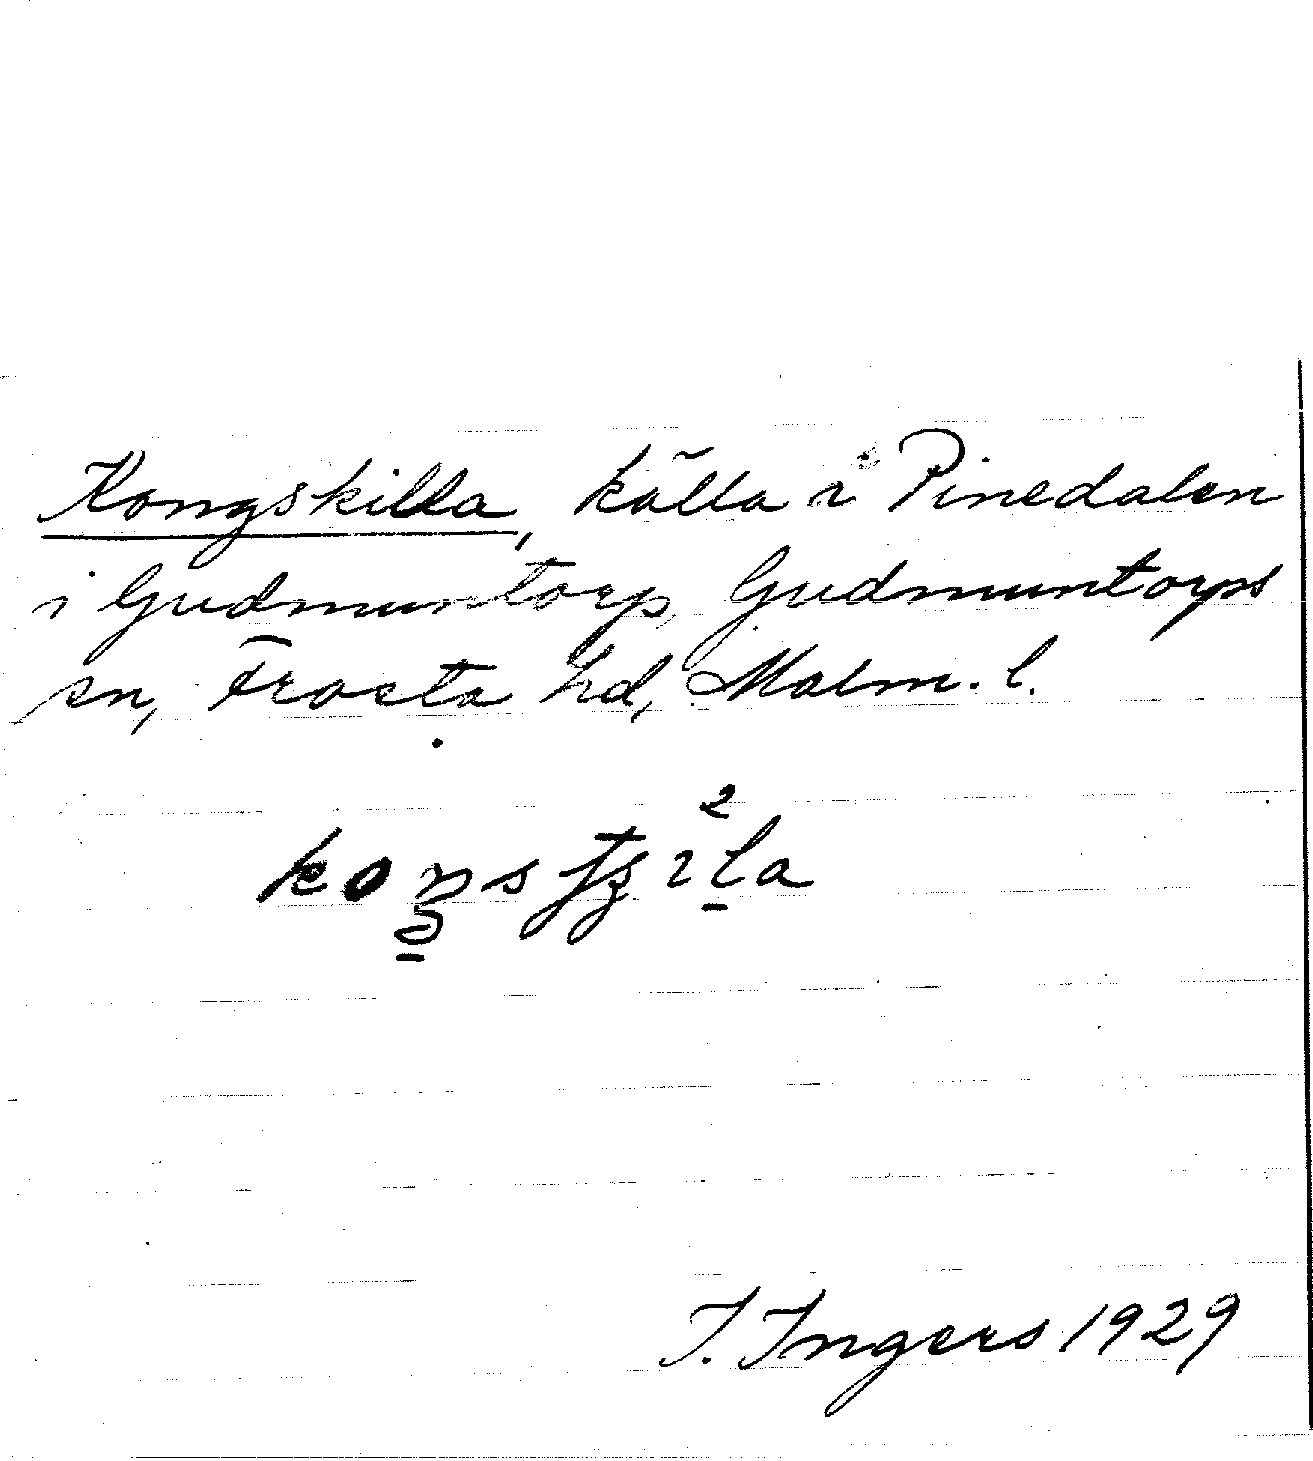 Kongskilla, källa i Pinedalen
i Gudmuntorp, Gudmuntorps
sn, Frosta hd, Malm. l.
I. Ingers 1929